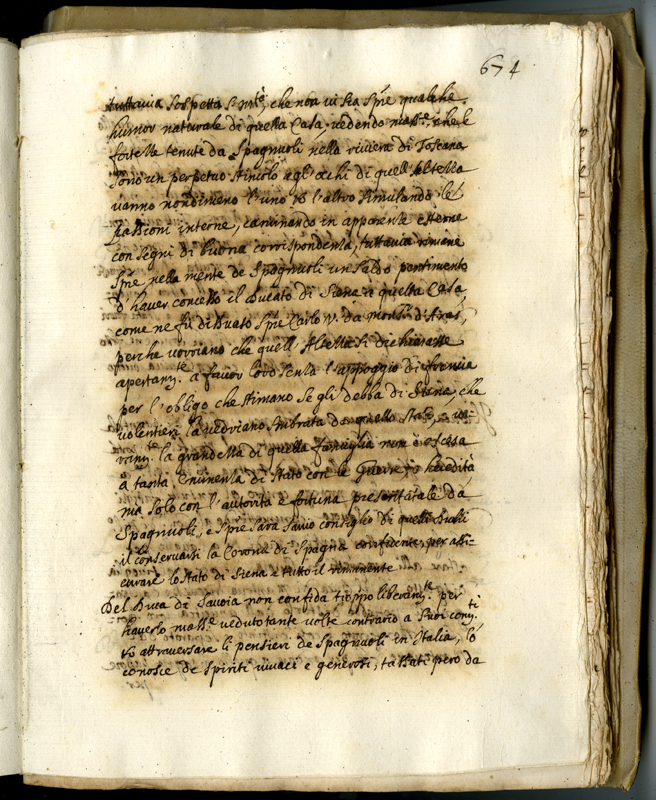 674
tuttavia sospetta s.mte, che non vi sia spre qualche
humor naturale di questa Casa, vedendo masse, che le
fortezze tenute da Spagnuoli nella riviera di Toscana
sono un perpetuo stimolo agl'occhi di quell'Altezza
vanno nondimeno l'uno e l'altro simulando le
passioni interne, caminando in apparente esterne
con segni di buona corrispondenza, tuttavia rimane
spre nella mente de Spagnuoli un saldo pentimento
d'haver concesso il Ducato di Siena a questa Casa
come ne fù disuato spre Carlo V. da Mons.r d'Aras,
perche vorriano che quell'Altezza si dichiarasse
apertamte. a favor loro senza l'appoggio di Francia
per l'obligo che stimano se gli debba di Siena, che
volentieri la vedriano smbrata da quello stato, e
la grandezza di questa famiglia non è ascesa
a tanta eminenza di stato con le Guerre, o heredità
ma solo con l'autorità e fortuna prestatale da
Spagnuoli, e spre sarà savio consiglio di questi Duchi
il conservarsi la Corona di Spagna confidente, per assi-
curare lo stato di Siena e tutto il rimanente
Del Duca di Savoia non confida troppo liberamte. per
haverlo masse veduto tante volte contrario a suoi
attraversare li pensieri de Spagnuoli in Italia, lo
conosce de spiriti vivaci e generosi, tassati però da